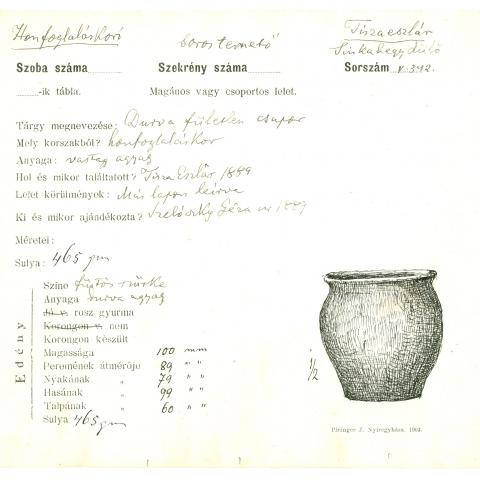 Honfoglaláskori soros temető Tiszaeszlár
Sinkahegy dűlő
Szoba száma Szekrény száma Sorszám V. 342.
-ik tábla. Magános vagy csoportos lelet.
Tárgy megnevezése: Durva fületlen csupor
Mely korszakból? honfoglaláskor
Anyaga: vastag agyag
Hol és mikor találtatott? Tisza Eszlár 1889
Lelet körülmények: Más lapon leírva
Ki és mikor ajándékozta? Szelószky Géza úr 1889
Méretei:
Sulya: 465 gm
Edény
Színe füstös szürke
Anyaga durva agyag
Jó v. rosz gyurma
Korongon v. nem
Korongon készült
Magassága 100 mm
Peremének átmérője 89 " "
Nyakának " 79 " "
Hasának " 99 " "
Talpának " 60 " "
Sulya 465 gm
1/2
Piringer J. Nyiregyháza. 1902.